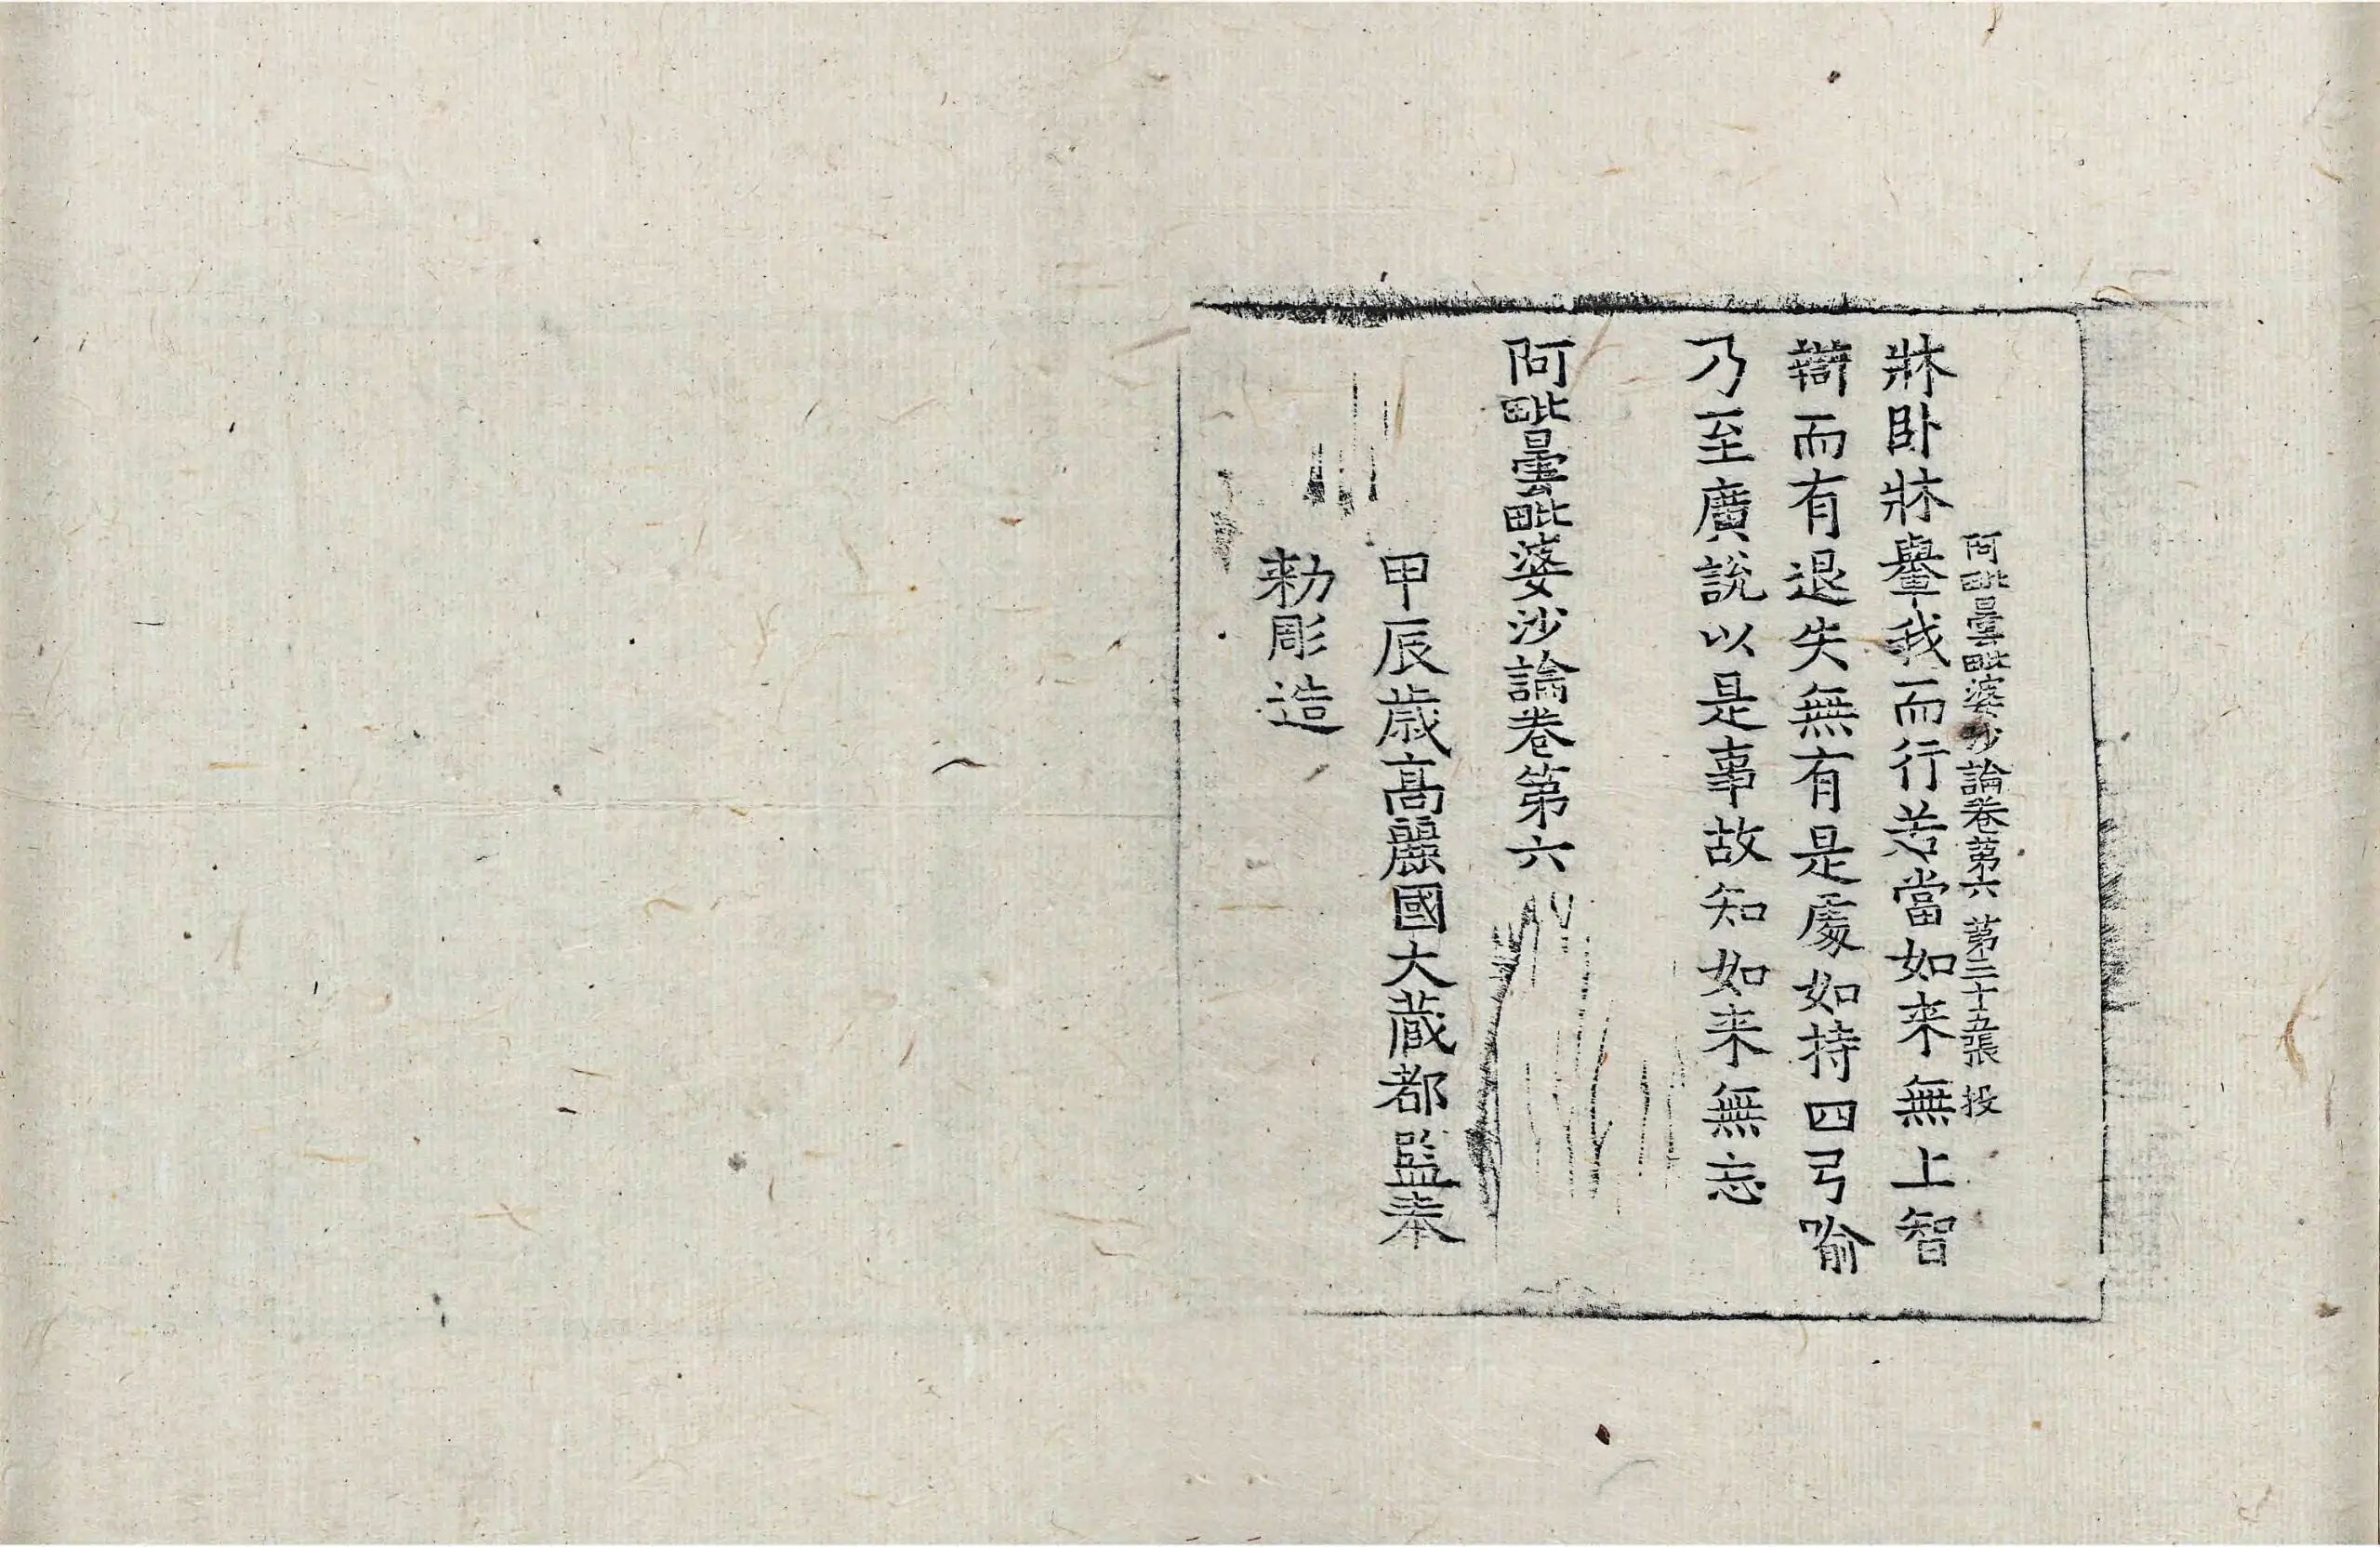 阿毗曇毗婆沙論卷第六 第二十五張 投
牀卧牀轝我而行若當如来無上智
辯而有退失無有是處如持四弓喻
乃至廣說以是事故知如来無忘
阿毗曇毗婆沙論卷第六
甲辰歳高麗國大蔵都監奉
勅彫造